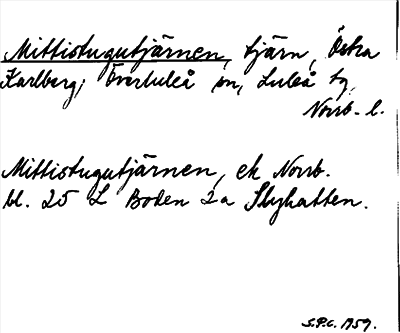 Mittistugutjärnen, tjärn, Östra
Karlberg, Överluleå sn, Luleå tg,
Norrb. l.
Mittistugutjärnen, ek Norrb.
bl. 25 L Boden 2a Skyhatten.
S.P.C. 1959.